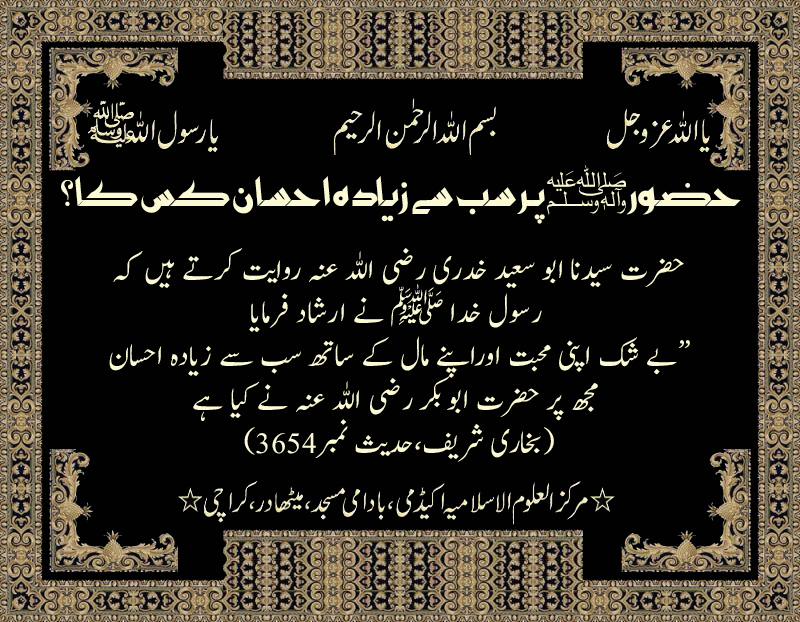 یااللہ عزوجل
بسم اللہ الرحمٰن الرحیم
یارسول اللہ ﷺ
حضور صلی اللہ علیہ وآلہ وسلم پر سب سے زیادہ احسان کس کا؟
حضرت سیدنا ابو سعید خدری رضی اللہ عنہ روایت کرتے ہیں کہ
رسول خدا ﷺ نے ارشاد فرمایا
”بے شک اپنی محبت اوراپنے مال کے ساتھ سب سے زیادہ احسان
مجھ پر حضرت ابوبکر رضی اللہ عنہ نے کیا ہے
(بخاری شریف،حدیث نمبر3654)
☆مرکز العلوم الاسلامیہ اکیڈمی،بادامی مسجد،میٹھادر،کراچی☆